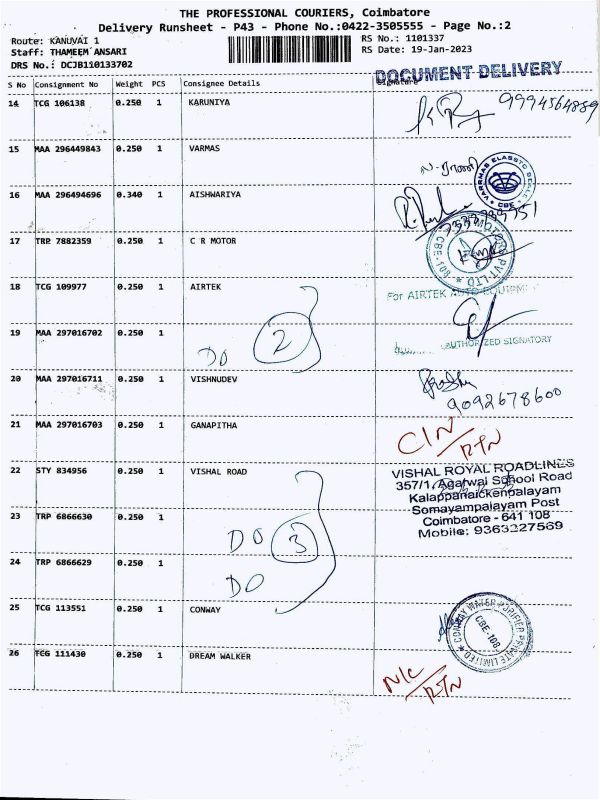 THE PROFESSIONAL COURIERS, Coimbatore
Delivery Runsheet - P43 - Phone No.:0422-3505555 - Page No.:2
Route: KANUVAI 1
Staff: THAMEEM ANSARI
DRS No.: DCJB110133702
RS No.: 1101337
RS Date: 19-Jan-2023
DOCUMENT DELIVERY
S No Consignment No Weight PCS Consignee Details Signature
14 TCG 106138 0.250 1 KARUNIYA
9994564889
15 MAA 296449843 0.250 1 VARMAS
ந. ராணி
CBE
16 MAA 296494696 0.340 1 AISHWARIYA
17 TRP 7882359 0.250 1 C R MOTOR
CBE-108
PVT LTD
18 TCG 109977 0.250 1 AIRTEK
For AIRTEK AUTO EQUIPM
19 MAA 297016702 0.250 1
DO 2
AUTHORIZED SIGNATORY
20 MAA 297016711 0.250 1 VISHNUDEV
9092678600
21 MAA 297016703 0.250 1 GANAPITHA
C/N
RTN
22 STY 834956 0.250 1 VISHAL ROAD
VISHAL ROYAL ROADLINES
357/1, Agarwal School Road
Kalappanaickenpalayam
Somayampalayam Post
Coimbatore - 641 108
Mobile: 9363227569
23 TRP 6866630 0.250 1
DO 3
24 TRP 6866629 0.250 1
DO
25 TCG 113551 0.250 1 CONWAY
CONWAY WATER PURIFIER PRIVATE LIMITED
CBE-108
26 TCG 111430 0.250 1 DREAM WALKER
N/C
RTN